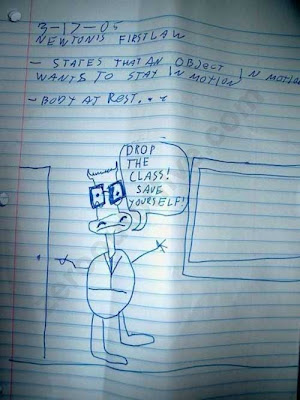 3-17-05
NEWTON'S FIRST LAW
- STATES THAT AN OBJECT IN MOTION
WANTS TO STAY IN MOTION
- BODY AT REST...
DROP
THE
CLASS!
SAVE
YOURSELF!